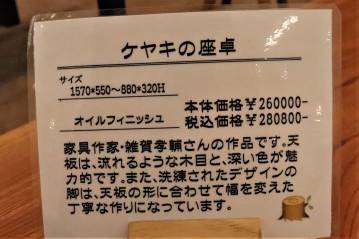 ケヤキの座卓
サイズ
1570*550～880*320H
本体価格￥260000-
オイルフィニッシュ 税込価格￥280800-
家具作家・雑賀孝輔さんの作品です。天
板は、流れるような木目と、深い色が魅
力的です。また、洗練されたデザインの
脚は、天板の形に合わせて幅を変えた
丁寧な作りになっています。